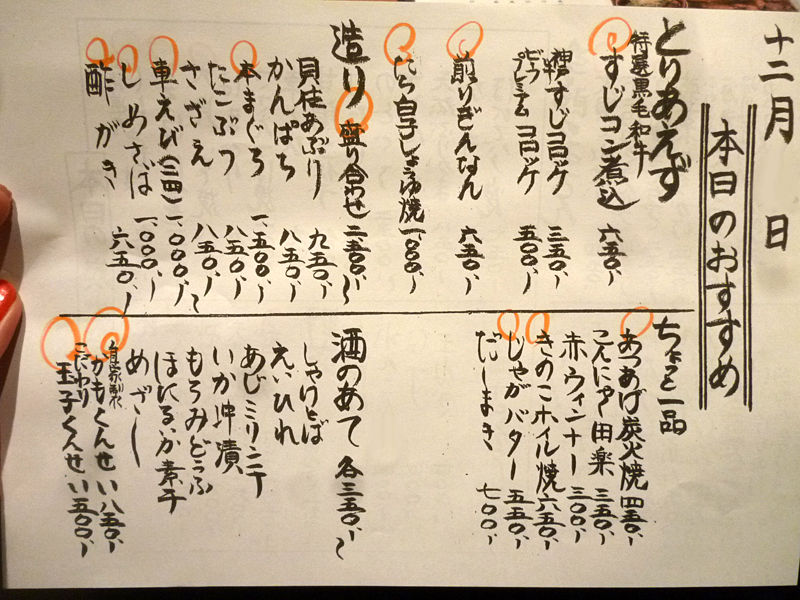 十二月 日
本日のおすすめ
とりあえず
特選黒毛和牛
すじコン煮込 六五〇、
神戸牛すじコロッケ 三五〇、
ビーフプレミアムコロッケ 五〇〇、
煎りぎんなん 六五〇、
たら白子しょうゆ焼 一、〇〇〇、
造り 盛り合わせ 二、五〇〇、〜
貝柱あぶり 九五〇、
かんぱち 八五〇、
本まぐろ 一、五〇〇、
たこぶつ 八五〇、
さざえ 八五〇、〜
車えび(二匹) 一、〇〇〇、
しめさば 一、〇〇〇、
酢がき 六五〇、
ちょっと一品
あつあげ炭火焼 四五〇、
こんにゃく田楽 三五〇、
赤ウィンナー 三〇〇、
きのこホイル焼 六五〇、
じゃがバター 五五〇、
だしまき 七〇〇、
酒のあて 各三五〇、〜
しゃけとば
えいひれ
あじミリン干
いか沖漬
もろみどうふ
ほたるいか素干
めざし
自家製
がもくんせい 八五〇、
こだわり
玉子くんせい 五〇〇、